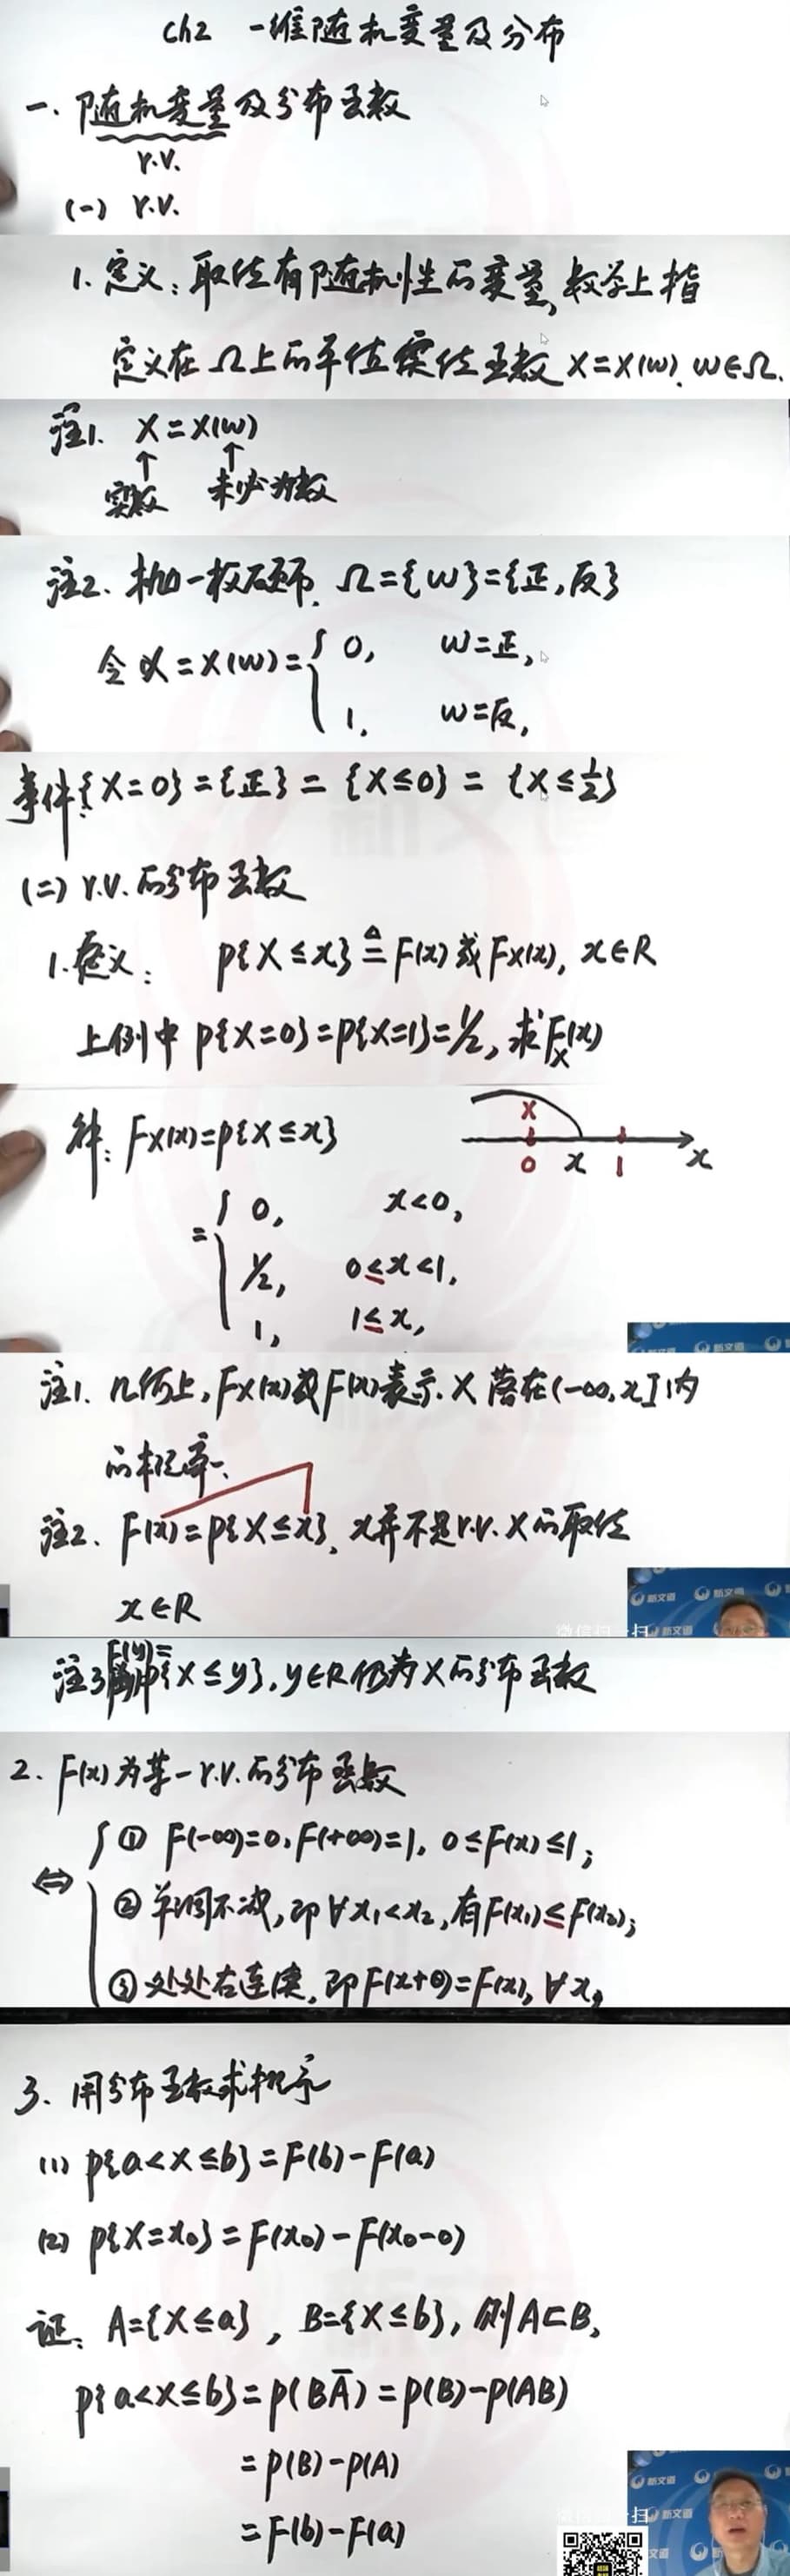 ch2 一维随机变量及分布
一. 随机变量及分布函数
r.v.
(一) r.v.
1. 定义: 取值有随机性的变量, 数学上指
定义在Ω上的单值实值函数 X=X(ω). ω∈Ω.
注1. X=X(ω)
↑ ↑
实数 未必为数
注2. 抛一枚硬币. Ω={ω}={正,反}
令 X=X(ω)={ 0, ω=正,
1. ω=反,
事件{X=0}={正}={X≤0}={X≤1/2}
(二) r.v.的分布函数
1.定义: P{X≤x}≜F(x)或FX(x), x∈R
上例中 P{X=0}=P{X=1}=1/2, 求FX(x)
解: FX(x)=P{X≤x}
X
0 x 1 x
={ 0, x<0,
1/2, 0≤x<1,
1, 1≤x,
新文道
注1. 几何上, FX(x)或F(x)表示. X 落在(-∞,x]内
的概率.
注2. F(x)=P{X≤x}, x并不是r.v. X的取值
x∈R
新文道 新文道
微信扫一扫 新文道
注3 F(y)=P{X≤y}, y∈R仍为X的分布函数
2. F(x)为某一r.v.的分布函数
⇔ { ① F(-∞)=0, F(+∞)=1, 0≤F(x)≤1;
② 单调不减, 即∀x₁<x₂, 有F(x₁)≤F(x₂);
③ 处处右连续, 即F(x+0)=F(x), ∀x,
3. 用分布函数求概率
(1) P{a<X≤b}=F(b)-F(a)
(2) P{X=x₀}=F(x₀)-F(x₀-0)
证: A={X≤a}, B={X≤b}, 则A⊂B,
P{a<X≤b}=P(BĀ)=P(B)-P(AB)
=P(B)-P(A)
=F(b)-F(a)
新文道
微信扫一扫 新文道